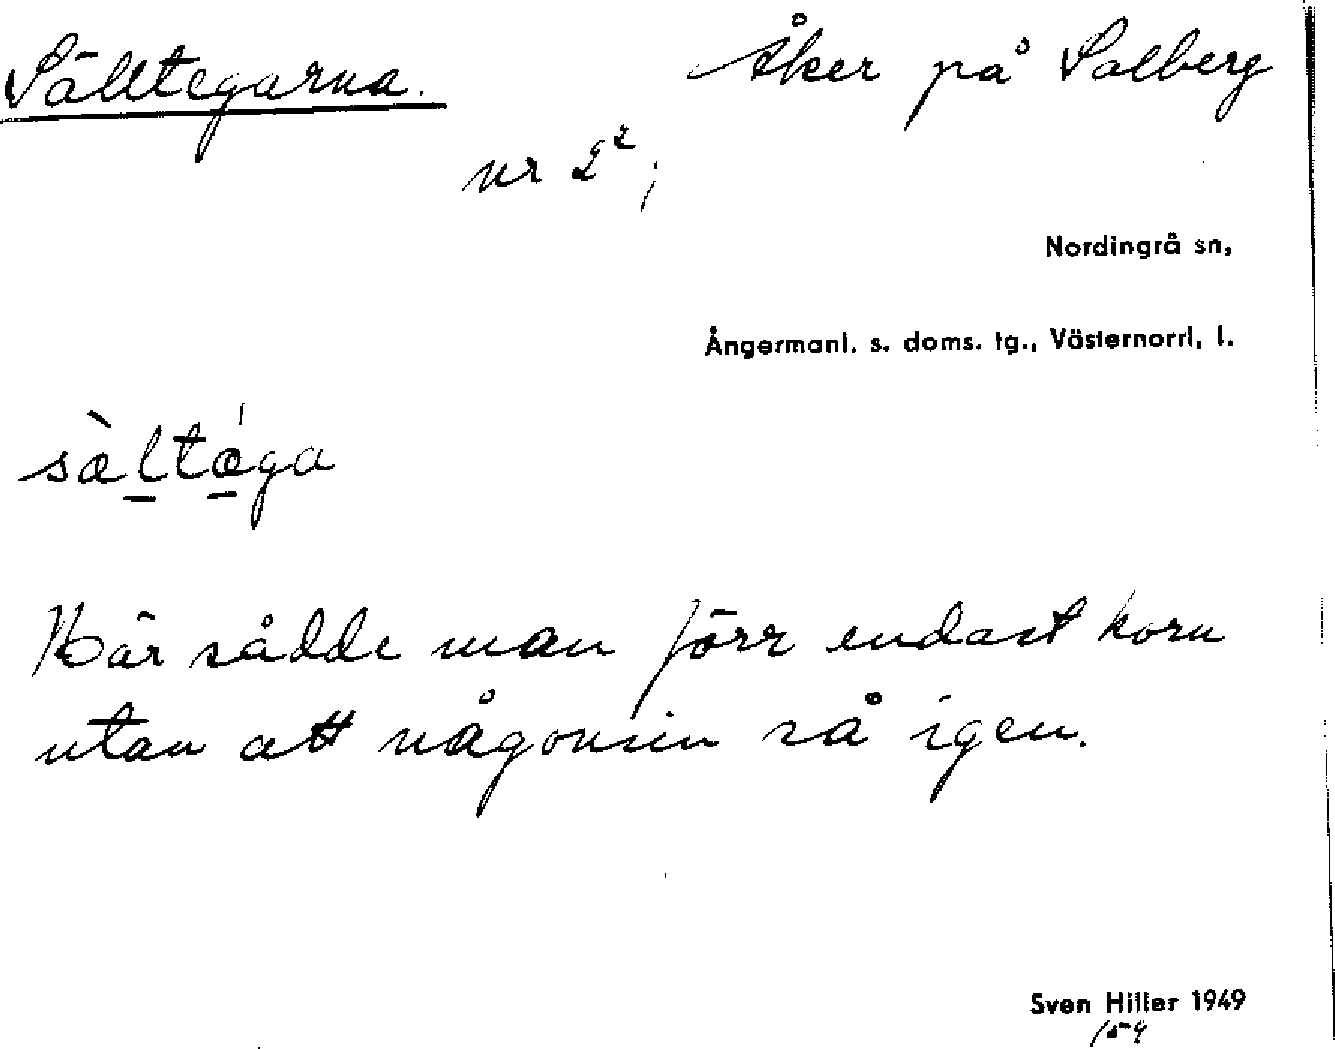 Sälltegarna. Åker på Salberg
nr 2²;
Nordingrå sn,
Ångermanl. s. doms. tg., Västernorrl. l.
sàltéga
Här sådde man förr endast korn
utan att någonsin så igen.
Sven Hiller 1949